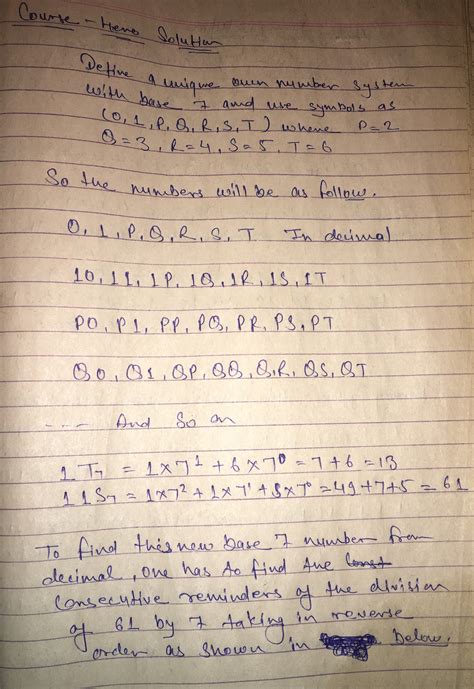 Course - Hero Solution
Define a unique own number system
with base 7 and use symbols as
(0, 1, P, Q, R, S, T) where P=2
Q=3, R=4, S=5, T=6
So the numbers will be as follow.
0, 1, P, Q, R, S, T In decimal
10, 11, 1P, 1Q, 1R, 1S, 1T
P0, P1, PP, PQ, PR, PS, PT
Q0, Q1, QP, QQ, QR, QS, QT
--- And So on
1T₇ = 1×7¹ + 6×7⁰ = 7+6 = 13
11S₇ = 1×7² + 1×7¹ + 5×7⁰ = 49+7+5 = 61
To find this new base 7 number from
decimal, one has to find the
consecutive reminders of the division
of 61 by 7 taking in reverse
order as shown in Below.